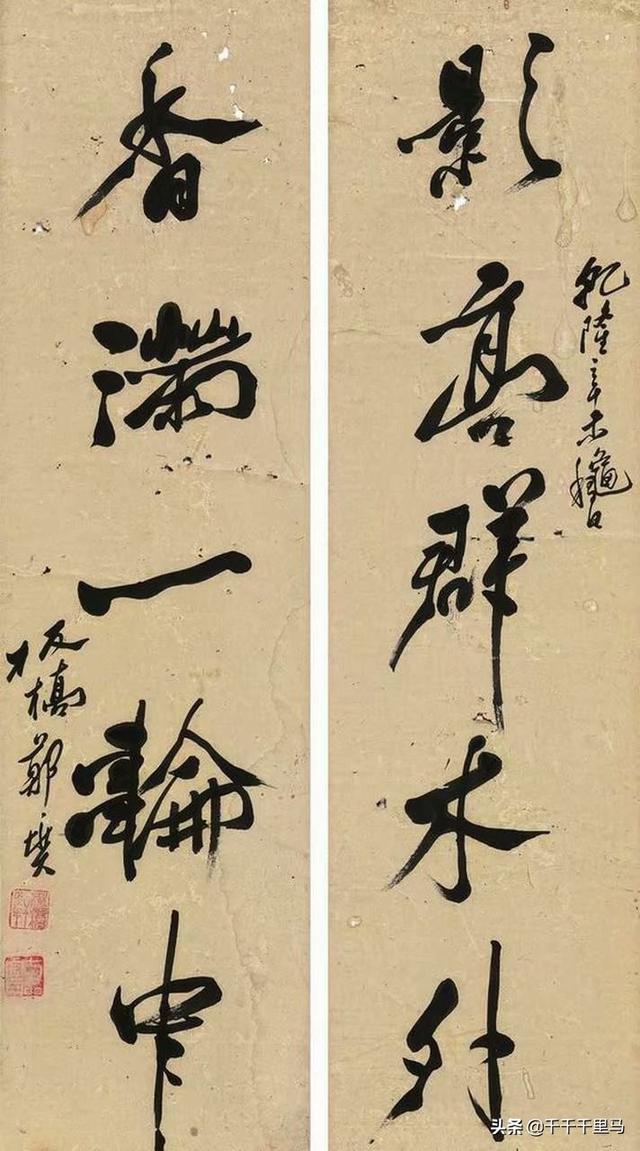 影高群木外
乾隆辛未龝日
香滿一輪中
板橋鄭燮
头条@千千千里马